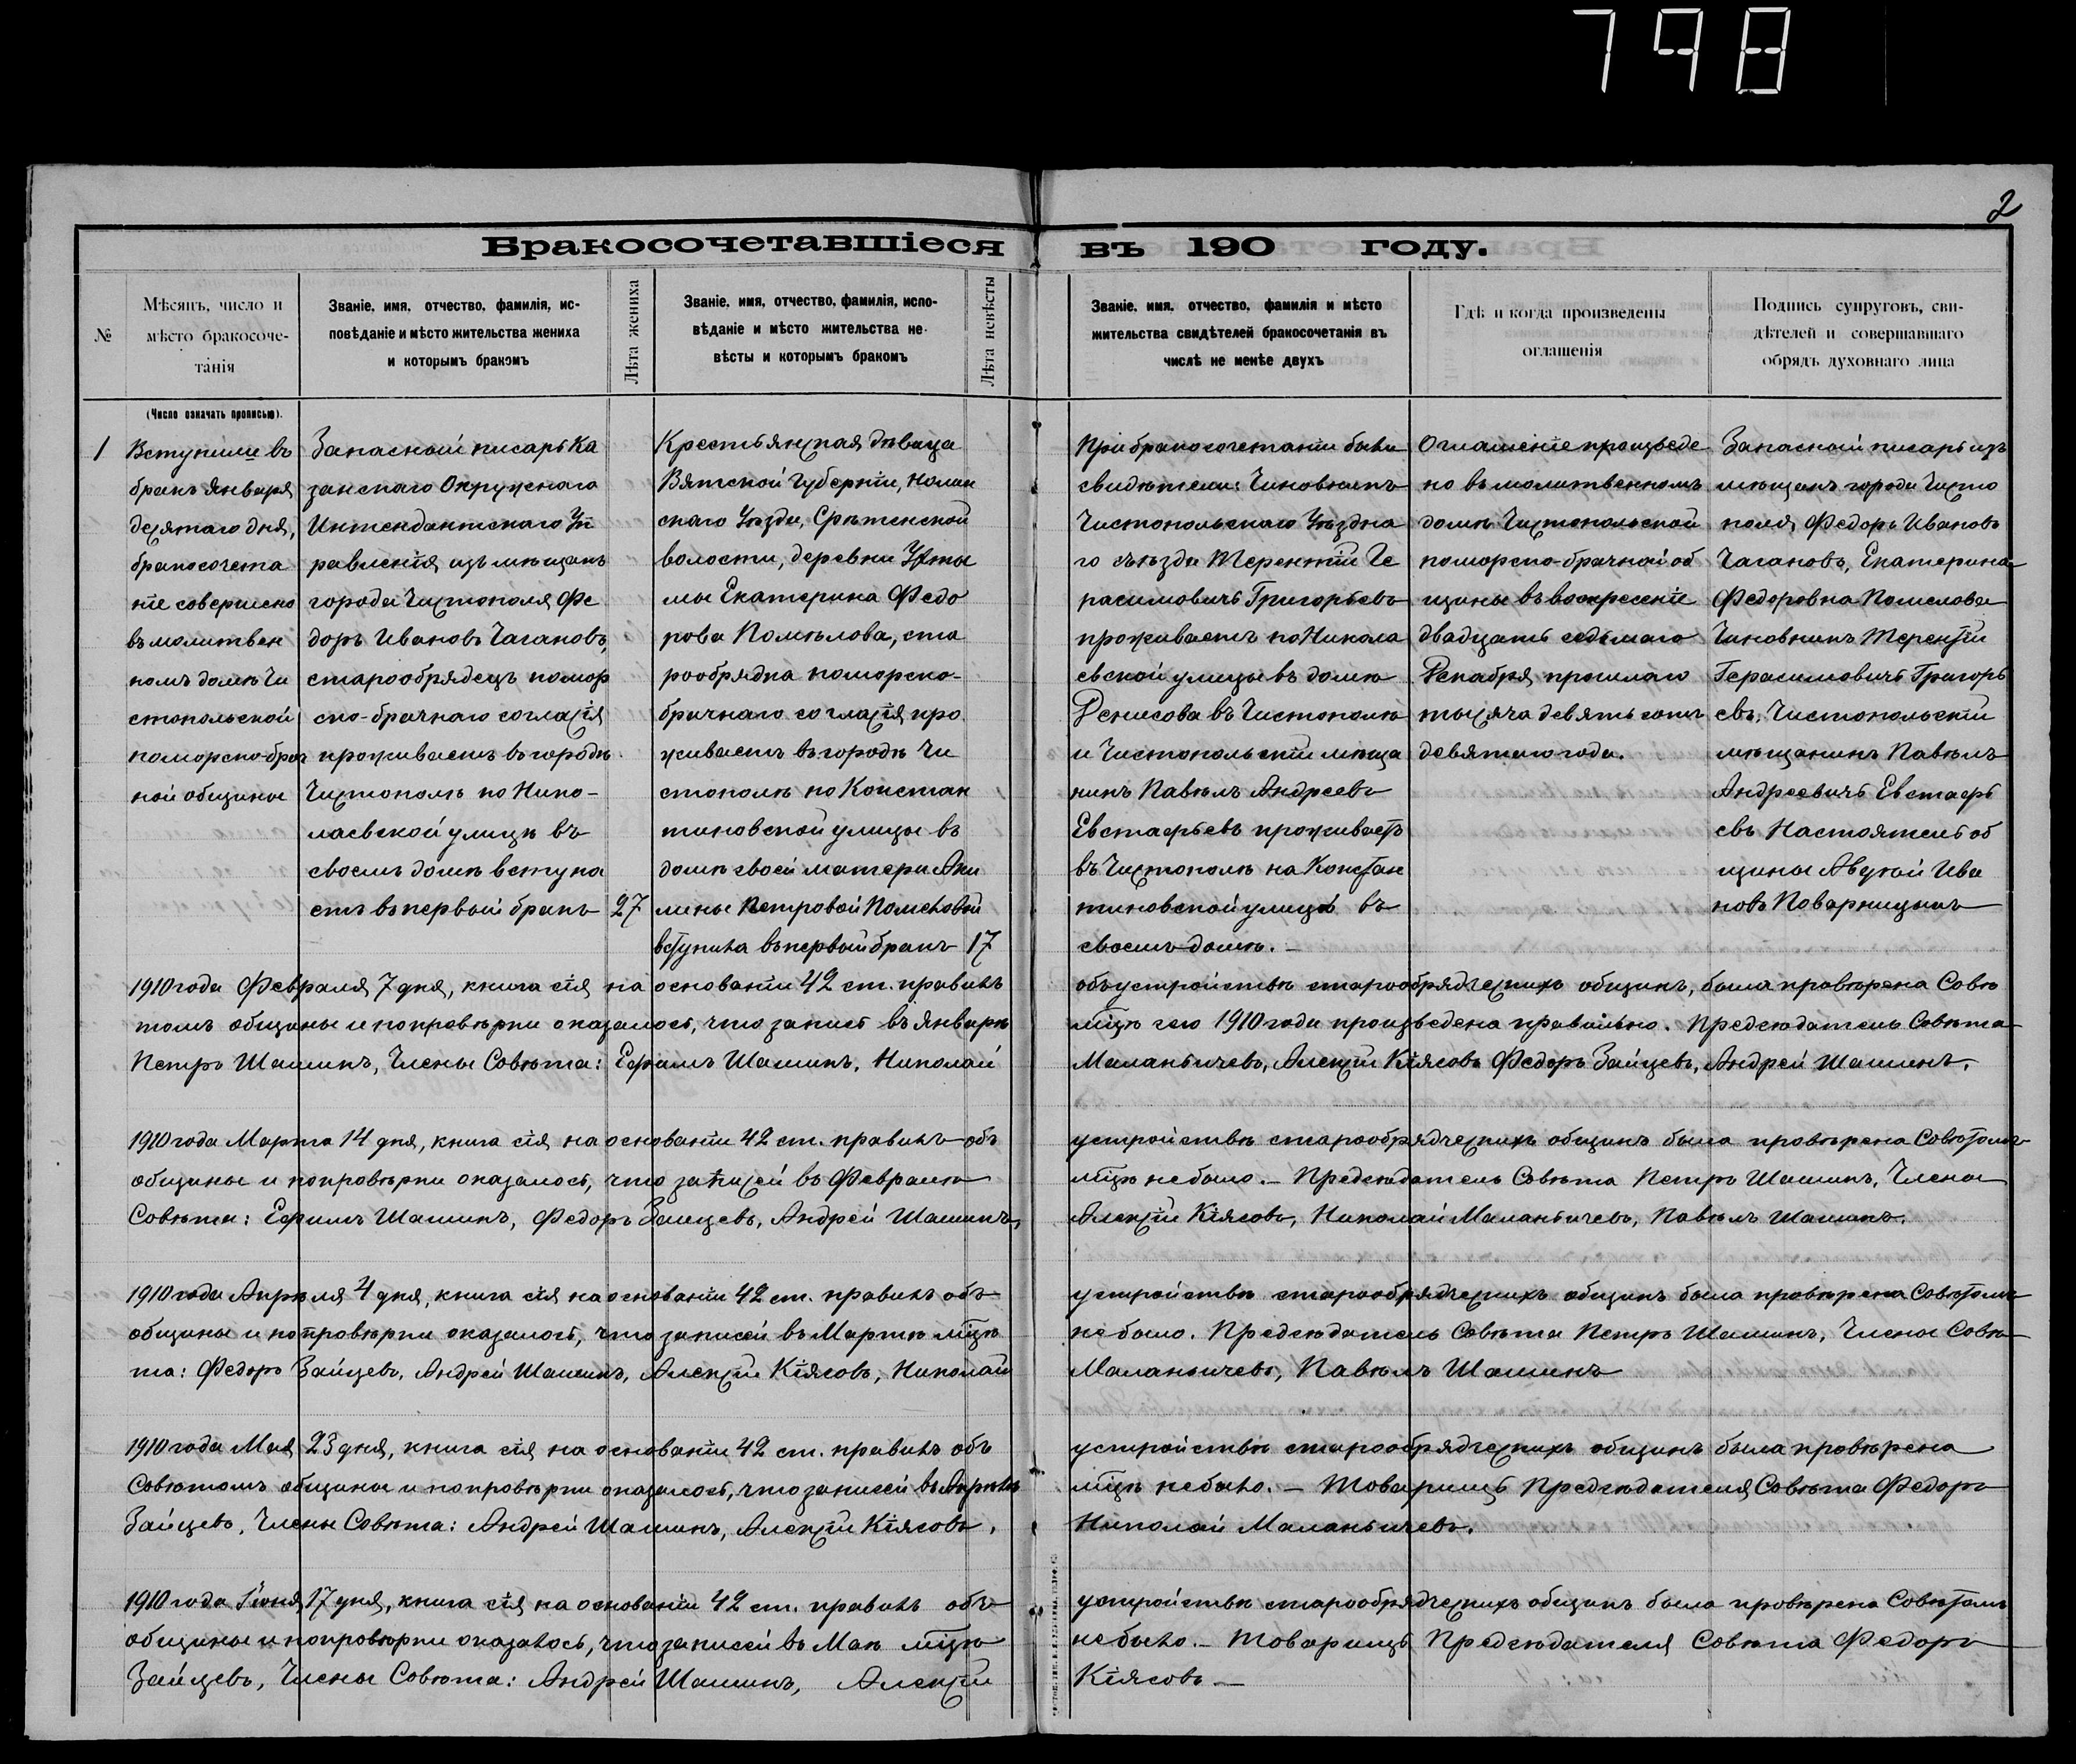 798
2
Бракосочетавшіеся въ 190 году.
№
Мѣсяцъ, число и
мѣсто бракосоче-
танія
(Число означать прописью).
Званіе, имя, отчество, фамилія, ис-
повѣданіе и мѣсто жительства жениха
и которымъ бракомъ
Лѣта жениха
Званіе, имя, отчество, фамилія, испо-
вѣданіе и мѣсто жительства не-
вѣсты и которымъ бракомъ
Лѣта невѣсты
Званіе, имя, отчество, фамилія и мѣсто
жительства свидѣтелей бракосочетанія въ
числѣ не менѣе двухъ
Гдѣ и когда произведены
оглашенія
Подпись супруговъ, сви-
дѣтелей и совершавшаго
обрядъ духовнаго лица
1
Вступили въ
бракъ Января
десятаго дня,
бракосочета
ніе совершено
въ молитвен
номъ домѣ Чи
стопольской
поморско-брач
ной общины
Запасной писарь Ка
занскаго Окружнаго
Интендантскаго Уп
равленія изъ мѣщанъ
города Чистополя Фе
доръ Ивановъ Чагановъ,
старообрядецъ помор
ско-брачнаго согласія
проживаетъ въ городѣ
Чистополѣ по Нико-
лаевской улицѣ въ
своемъ домѣ вступа
етъ въ первый бракъ
27
Крестьянская дѣвица
Вятской Губерніи, Нолин
скаго Уѣзда, Срѣтенской
волости, деревни
мы Екатерина Федо
рова Помѣлова, ста
рообрядка поморско-
брачнаго согласія про
живаетъ въ городѣ Чи
стополѣ по Констан
тиновской улицы въ
домѣ своей матери Аки
лины Петровой Помѣловой
вступила въ первый бракъ
17
При бракосочетаніи были
свидѣтели: Чиновникъ
Чистопольскаго Уѣздна
го съѣзда Терентій Ге
расимовичъ Григорьевъ
проживаетъ по Никола
евской улицы въ домѣ
Денисова въ Чистополѣ
и Чистопольскій мѣща
нинъ Павелъ Андреевъ
Евстафьевъ проживаетъ
въ Чистополѣ на Констан
тиновской улицѣ въ
своемъ домѣ. —
Оглашеніе произведе
но въ молитвенномъ
домѣ Чистопольской
поморско-брачной об
щины въ воскресеніе
двадцать седьмаго
Декабря прошлаго
тысяча девятьсотъ
девятаго года.
Запасной писарь изъ
мѣщанъ города Чисто
поля, Федоръ Ивановъ
Чагановъ, Екатерина
Федоровна Помелова
Чиновникъ Терентій
Герасимовичъ Григорь
евъ, Чистопольскій
мѣщанинъ Павѣлъ
Андреевичъ Евстафь
евъ Настоятель об
щины Авдкій Ива
новъ Поварницынъ
1910 года Февраля 7 дня, книга сія на основаніи 42 ст. правилъ объ устройствѣ старообрядческихъ общинъ, была провѣрена Совѣ
томъ общины и по провѣрки оказалось, что запись въ Январѣ мѣцѣ сего 1910 года произведена правильно. Предсѣдатель Совѣта
Петръ Шашинъ, Члены Совѣта: Ефимъ Шашинъ, Николай Маланьичевъ, Алексій Кіясовъ Федоръ Зайцевъ, Андрей Шашинъ.
1910 года Марта 14 дня, книга сія на основаніи 42 ст. правилъ объ устройствѣ старообрядческихъ общинъ была провѣрена Совѣтомъ
общины и по провѣрки оказалось, что записей въ Февралѣ мѣцѣ не было. — Предсѣдатель Совѣта Петръ Шашинъ, Члены
Совѣта: Ефимъ Шашинъ, Федоръ Заицевъ, Андрей Шашинъ, Алексій Кіясовъ, Николай Маланьичевъ, Павѣлъ Шашинъ.
1910 года Апрѣля 4 дня, книга сія на основаніи 42 ст. правилъ объ устройствѣ старообрядческихъ общинъ была провѣрена Совѣтомъ
общины и по провѣрки оказалось, что записей въ Мартѣ мѣцѣ не было. Предсѣдатель Совѣта Петръ Шашинъ, Члены Совѣ
та: Федоръ Зайцевъ, Андрей Шашинъ, Алексій Кіясовъ, Николай Маланьичевъ, Павѣлъ Шашинъ
1910 года Мая 23 дня, книга сія на основаніи 42 ст. правилъ объ устройствѣ старообрядческихъ общинъ была провѣрена
Совѣтомъ общины и по провѣрки оказалось, что записей въ Апрѣлѣ мѣцѣ не было. — Товарищъ Предсѣдателя Совѣта Федоръ
Зайцевъ, Члены Совѣта: Андрей Шашинъ, Алексій Кіясовъ, Николай Маланьичевъ.
1910 года Іюня 17 дня, книга сія на основаніи 42 ст. правилъ объ устройствѣ старообрядческихъ общинъ была провѣрена Совѣтомъ
общины и по провѣрки оказалось, что записей въ Маѣ мѣцѣ не было. — Товарищъ Предсѣдателя Совѣта Федоръ
Зайцевъ, Члены Совѣта: Андрей Шашинъ, Алексій Кіясовъ —